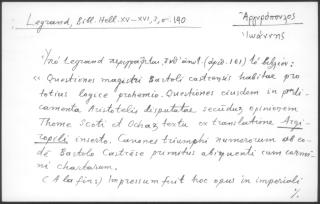 Legrand, Bill. Hell. XV–XVI, 3, σ. 190
Ἀργυρόπουλος
Ἰωάννης
Ὑπὸ Legrand περιγράφεται, ὑπ' ἀριθ. (161) τὸ βιβλίον:
« Questiones magistri Bastoli castrensis habitae pro
totius logice prohemio. Questiones eiusdem in predi-
camenta Aristotelis disputatae secūduz opinionem
Theme Scoti et Ochaz textu ex translatione Argi-
ropili inserto. Canones triumphi numerorum ab eo-
dē Bastolo Castrēse primitus abiquenti cum carmi-
ni chartarum.
(A la fin:) Impressum fuit hoc opus in imperiali
%